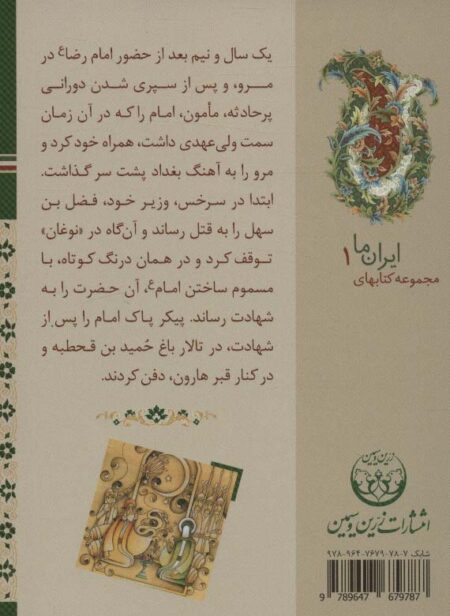 یک سال و نیم بعد از حضور امام رضاع در
مرو، و پس از سپری شدن دورانی
پرحادثه، مأمون، امام را که در آن زمان
سمت ولی‌عهدی داشت، همراه خود کرد و
مرو را به آهنگ بغداد پشت سر گذاشت.
ابتدا در سرخس، وزیر خود، فضل بن
سهل را به قتل رساند و آن‌گاه در «نوغان»
توقف کرد و در همان درنگ کوتاه، با
مسموم ساختن امامع، آن حضرت را به
شهادت رساند. پیکر پاک امام را پس از
شهادت، در تالار باغ حُمید بن قحطبه و
در کنار قبر هارون، دفن کردند.
ایران ما ۱
مجموعه کتابهای
زرین و سیمین
انتشارات زرین و سیمین
شابک ۷-۷۸-۷۶۷۹-۹۶۴-۹۷۸
9 789647 679787